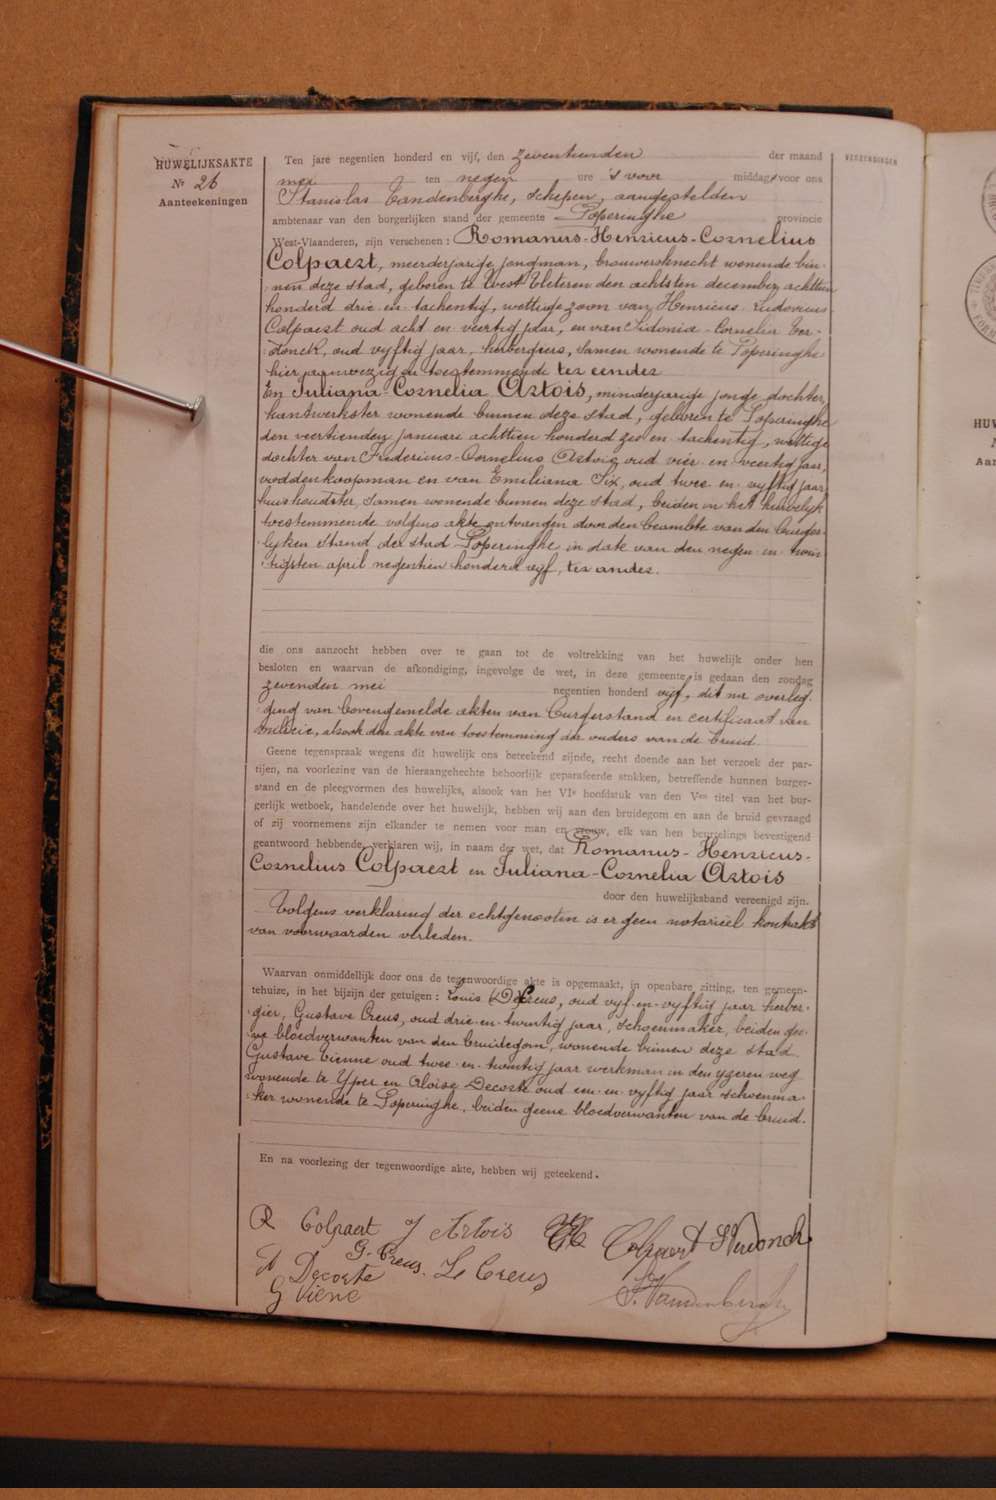 HUWELIJKSAKTE
Nr 26
Aanteekeningen
VERZENDINGEN
Ten jare negentien honderd en vijf, den zeventienden der maand
mei ten negen ure 's voor middag, voor ons
Stanislas Vandenberghe, schepen, aangestelden
ambtenaar van den borgerlijken stand der gemeente Poperinghe provincie
West-Vlaanderen, zijn verschenen: Romanus-Henricus-Cornelius
Colpaert, meerderjarige jongman, brouwersknecht wonende bin-
nen deze stad, geboren te West Vleteren den achtsten december achttien
honderd drie en tachentig, wettige zoon van Henricus Ludovicus
Colpaert oud acht en veertig jaar, en van Sidonia-Cornelia Ver-
donck, oud vyftig jaar, herbergiers, samen wonende te Poperinghe
hier aanwezig en toestemmende ter eender
En Juliana-Cornelia Artois, minderjarige jonge dochter,
handwerkster wonende binnen deze stad, geboren te Poperinghe
den veertienden januari achttien honderd zes en tachentig, wettige
dochter van Fredericus-Cornelius Artois oud vier en veertig jaar,
voddenkoopman en van Emiliana Six, oud twee en vyftig jaar
huishoudster, samen wonende binnen deze stad, beiden in het huwelyk
toestemmende volgens akte ontvangen door den beambte van den burger-
lyken stand der stad Poperinghe in date van den negen en twin
tigsten april negentien honderd vyf, ter ander.
die ons aanzocht hebben over te gaan tot de voltrekking van het huwelijk onder hen
besloten en waarvan de afkondiging, ingevolge de wet, in deze gemeente is gedaan den zondag
zevenden mei negentien honderd vyf, dit na overleg-
ging van bovengemelde akten van burgerstand en certificaat van
militie, alsook den akte van toestemming der ouders van de bruid
Geene tegenspraak wegens dit huwelijk ons beteekend zijnde, recht doende aan het verzoek der par-
tijen, na voorlezing van de hieraangehechte behoorlijk geparafeerde stukken, betreffende hunnen burger-
stand en de pleegvormen des huwelijks, alsook van het VIe hoofdstuk van den Ven titel van het bur-
gerlijk wetboek, handelende over het huwelijk, hebben wij aan den bruidegom en aan de bruid gevraagd
of zij voornemens zijn elkander te nemen voor man en vrouw, elk van hen beurtelings bevestigend
geantwoord hebbende, verklaren wij, in naam der wet, dat Romanus-Henricus-
Cornelius Colpaert en Juliana-Cornelia Artois
door den huwelijksband vereenigd zijn.
Volgens verklaring der echtgenooten is er geen notariëel kontrakt
van voorwaarden verleden.
Waarvan onmiddellijk door ons de tegenwoordige akte is opgemaakt, in openbare zitting, ten gemeen-
tehuize, in het bijzijn der getuigen: Louis Creus, oud vyf-en-vyftig jaar herber-
gier, Gustave Creus, oud drie en twintig jaar, schoenmaker, beiden gee-
ne bloedverwanten van den bruidegom, wonende binnen deze stad
Gustave Vienne oud twee en twintig jaar werkman in den yzeren weg
wonende te Yper en Aloïse Decorte oud een en vyftig jaar schoenma-
ker wonende te Poperinghe, beiden geene bloedverwanten van de bruid.
En na voorlezing der tegenwoordige akte, hebben wij geteekend.
R Colpaert J Artois Colpaert S Verdonck
G. Creus. L Creus
A Decorte
G Viene
S. Vandenberghe